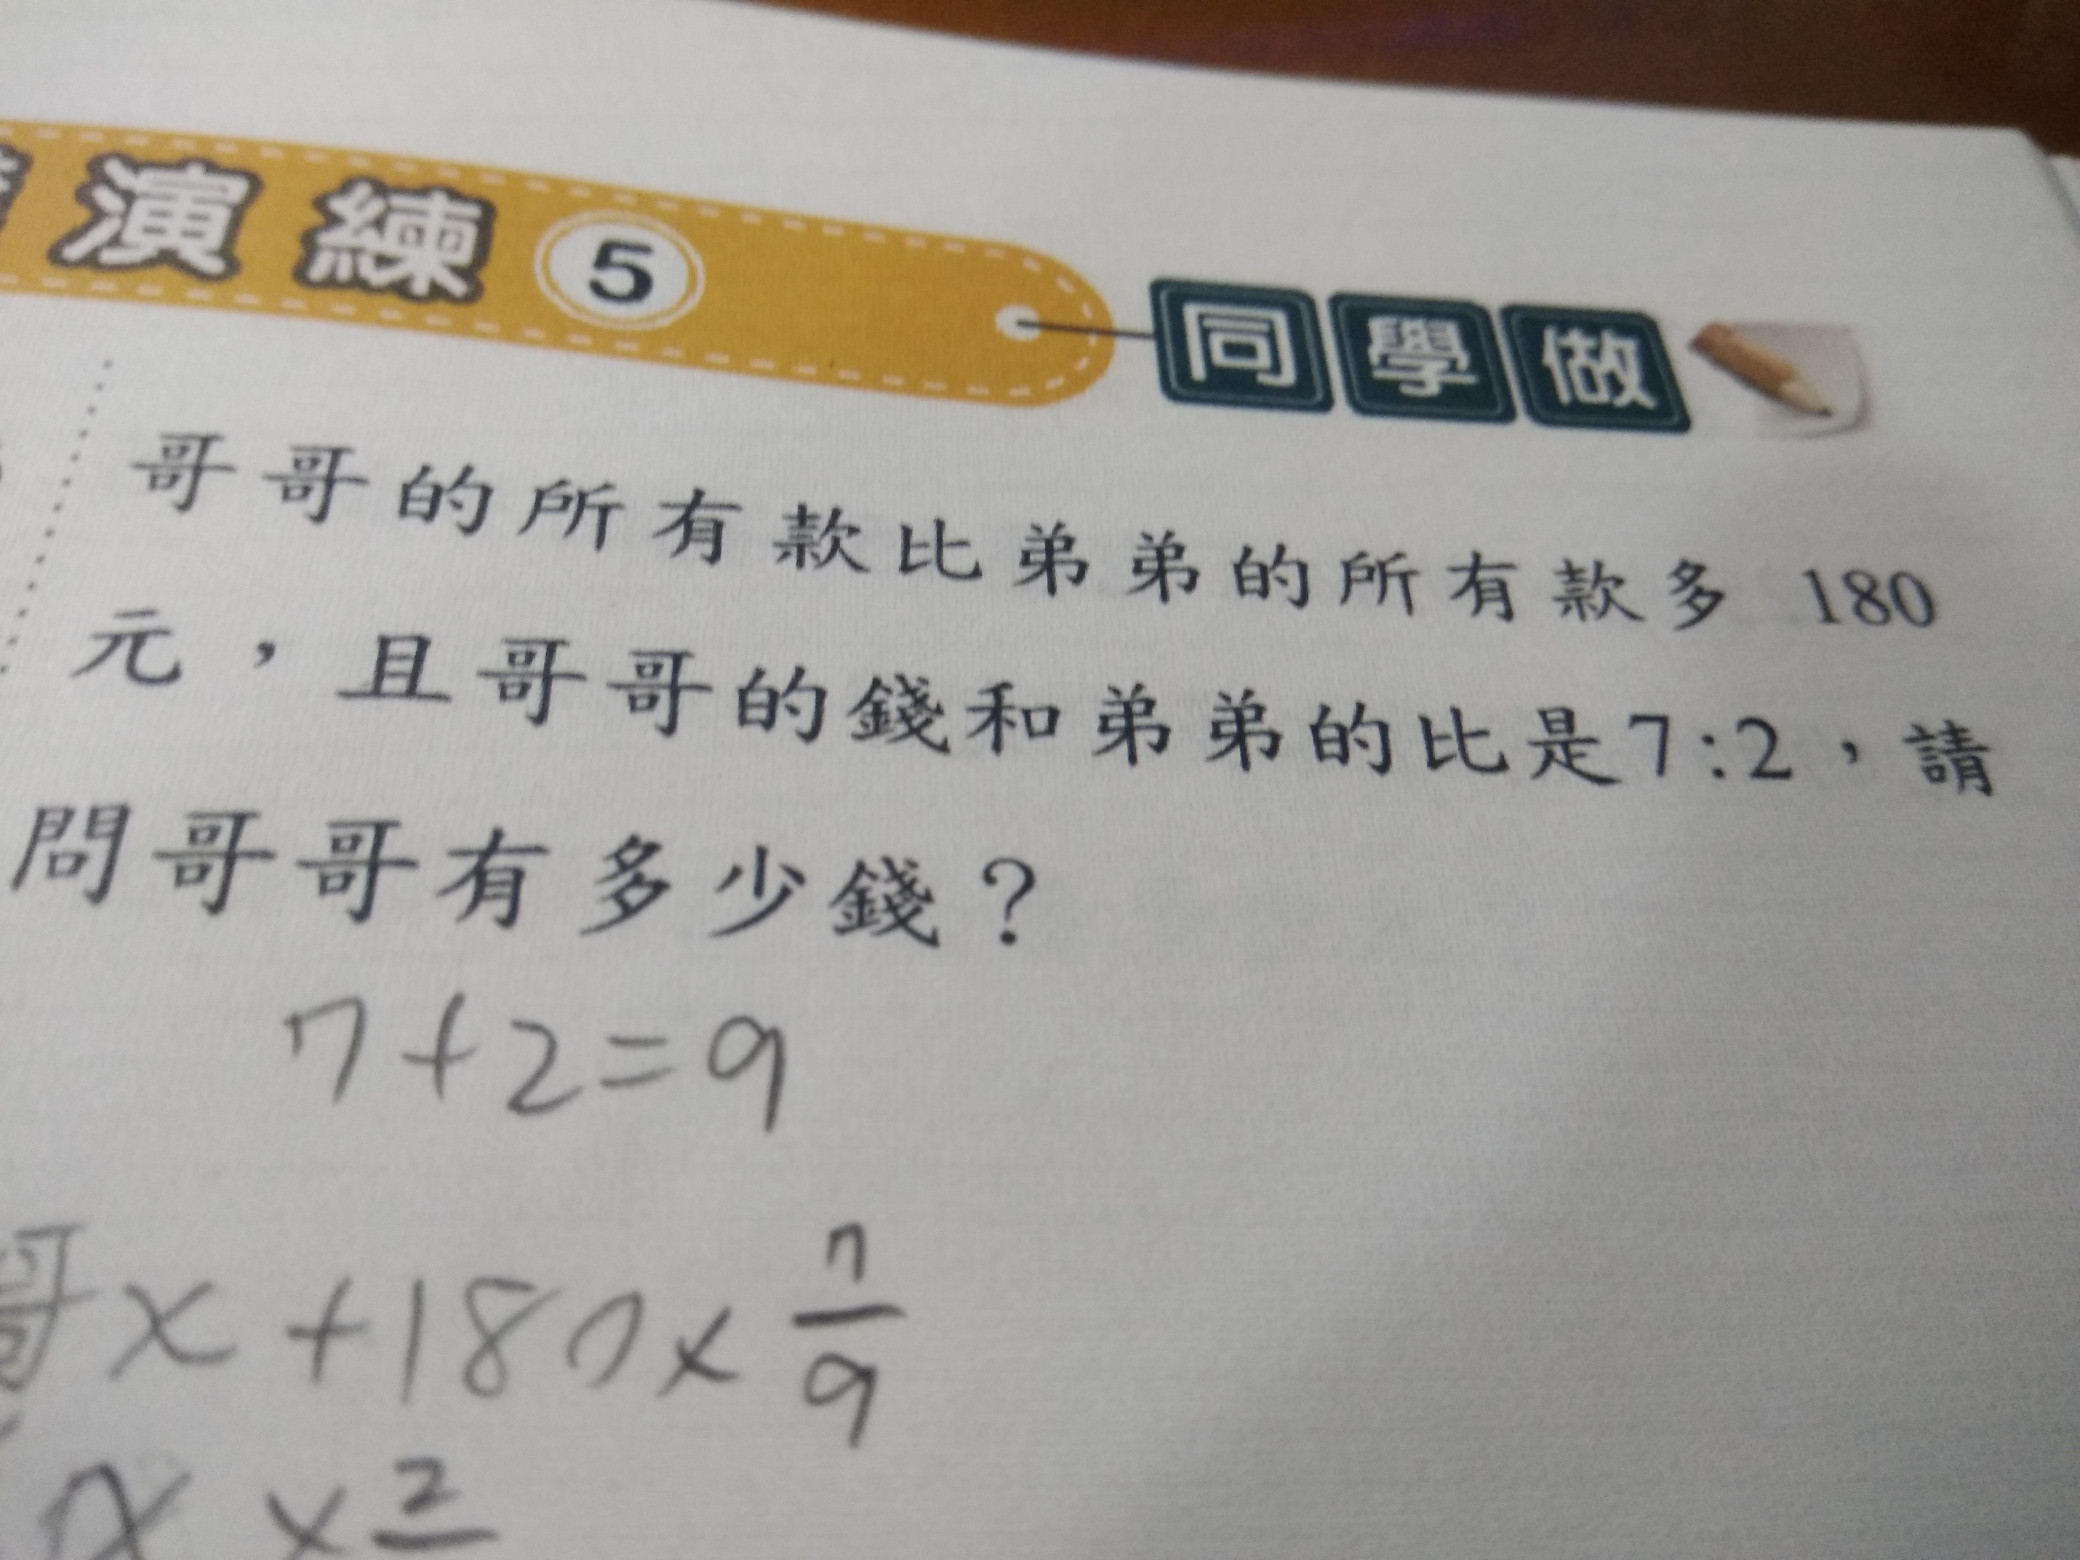 演練 5 同學做
哥哥的所有款比弟弟的所有款多 180
元，且哥哥的錢和弟弟的比是7:2，請
問哥哥有多少錢？
7+2=9
哥 x+180×7/9
x×2